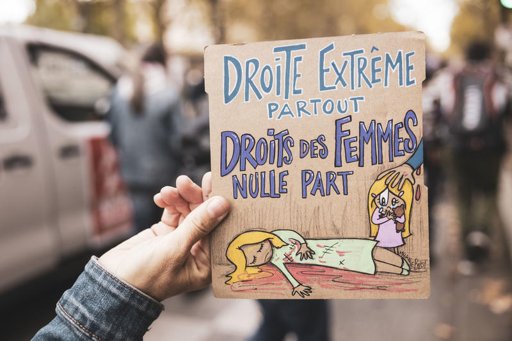 DROITE EXTRÊME
PARTOUT
DROITS DES FEMMES
NULLE PART